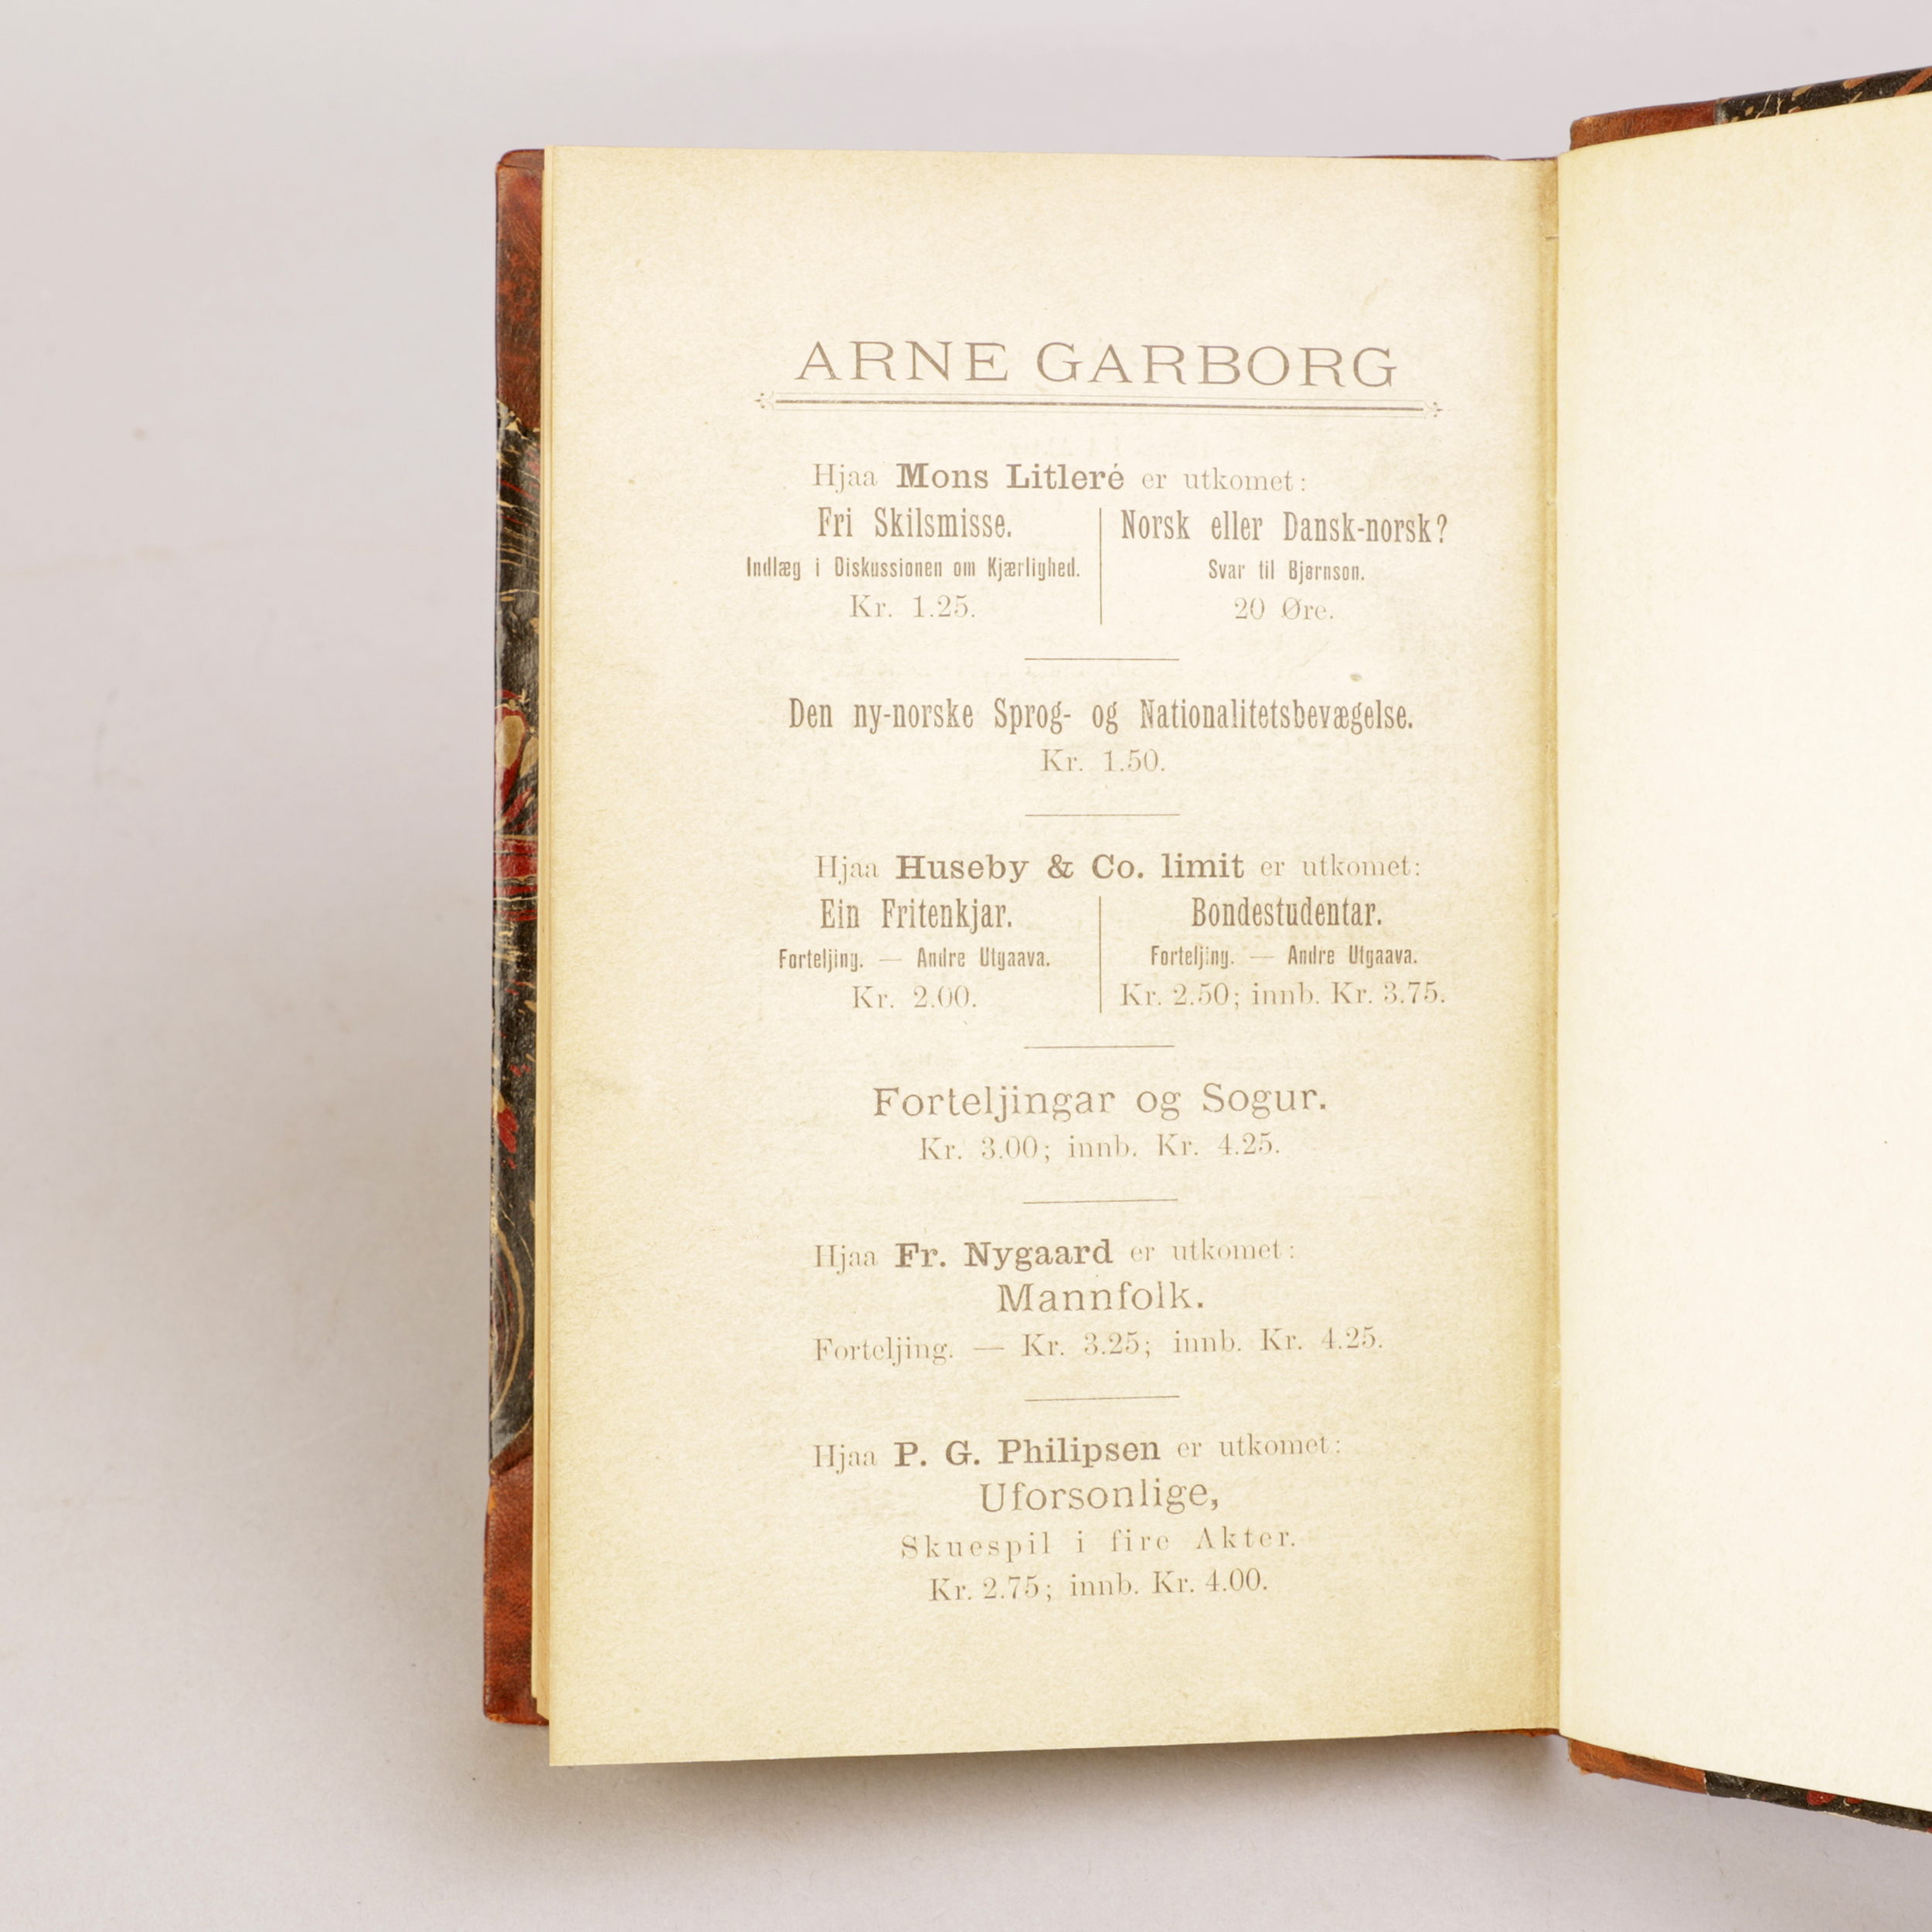 ARNE GARBORG
Hjaa Mons Litleré er utkomet:
Fri Skilsmisse.
Indlæg i Diskussionen om Kjærlighed.
Kr. 1.25.
Norsk eller Dansk-norsk?
Svar til Bjørnson.
20 Øre.
Den ny-norske Sprog- og Nationalitetsbevægelse.
Kr. 1.50.
Hjaa Huseby & Co. limit er utkomet:
Ein Fritenkjar.
Forteljing. — Andre Utgaava.
Kr. 2.00.
Bondestudentar.
Forteljing. — Andre Utgaava.
Kr. 2.50; innb. Kr. 3.75.
Forteljingar og Sogur.
Kr. 3.00; innb. Kr. 4.25.
Hjaa Fr. Nygaard er utkomet:
Mannfolk.
Forteljing. — Kr. 3.25; innb. Kr. 4.25.
Hjaa P. G. Philipsen er utkomet:
Uforsonlige,
Skuespil i fire Akter.
Kr. 2.75; innb. Kr. 4.00.